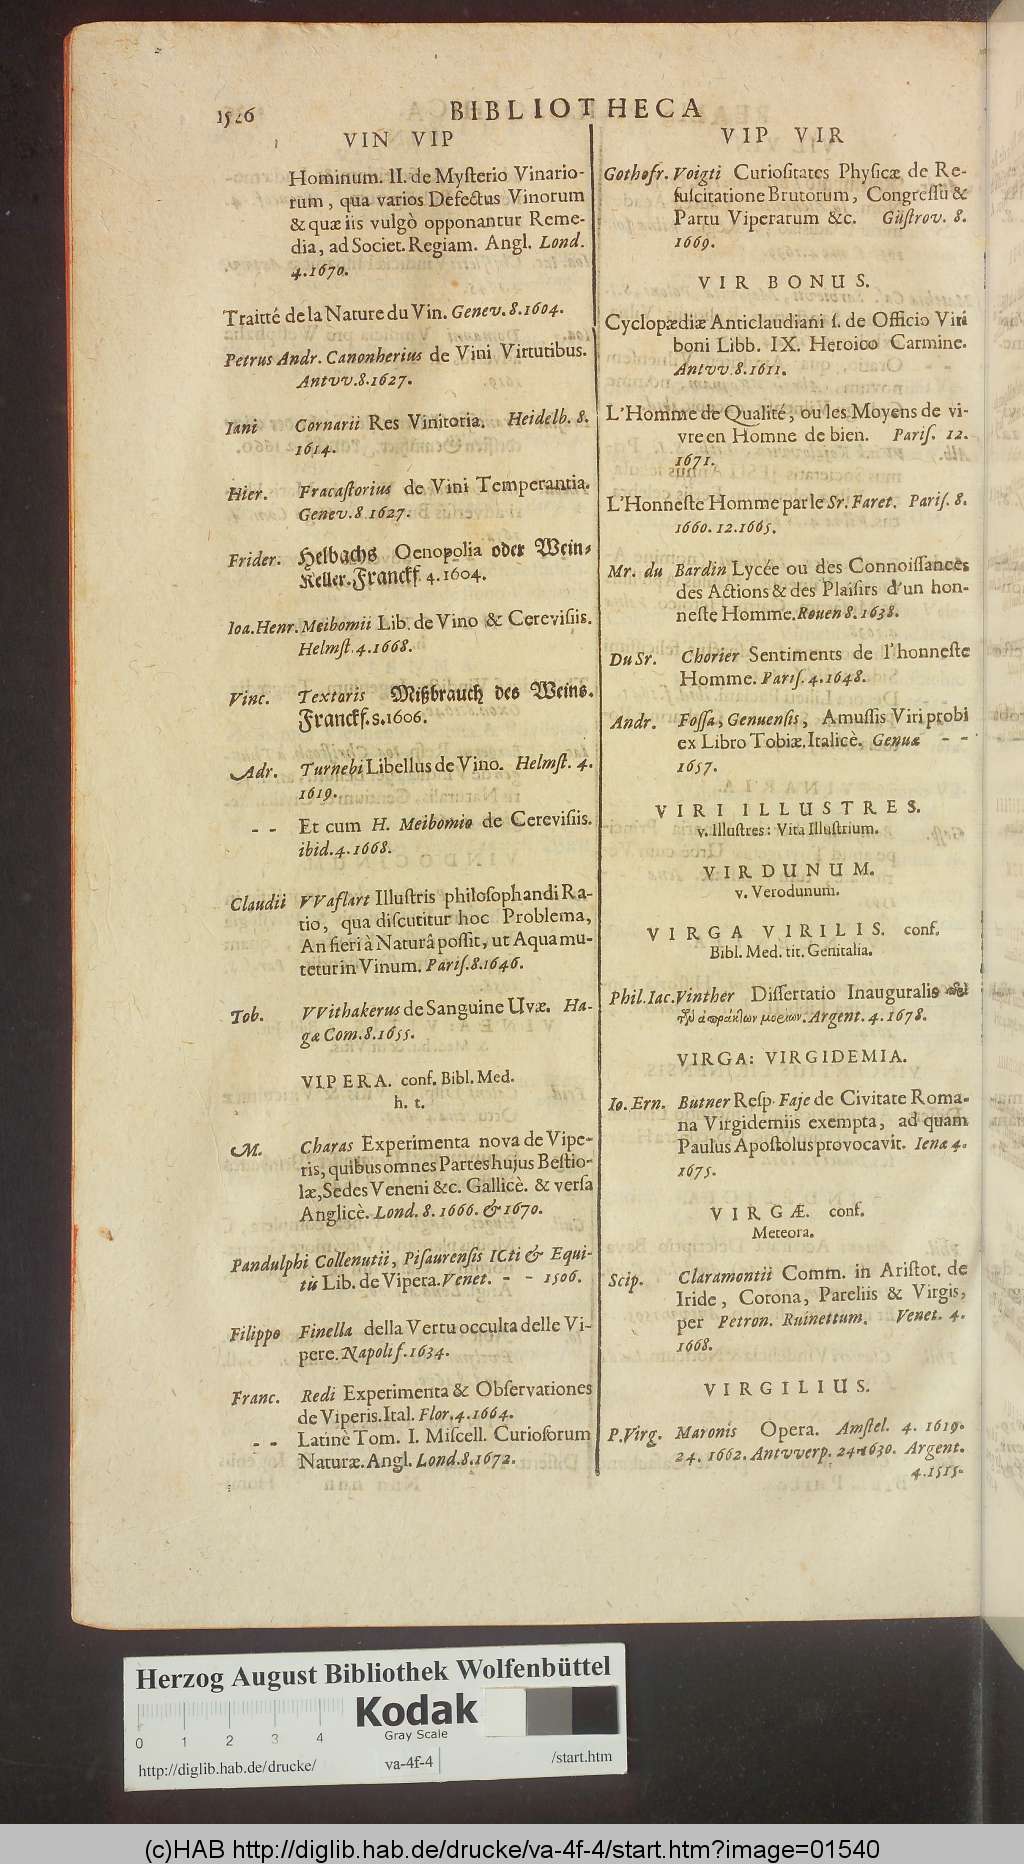 1526 BIBLIOTHECA
VIN VIP
Hominum. II. de Myſterio Vinario-
rum, qua varios Defectus Vinorum
& quæ iis vulgò opponantur Reme-
dia, ad Societ. Regiam. Angl. Lond.
4.1670.
Traitté de la Nature du Vin. Genev. 8. 1604.
Petrus Andr. Canonherius de Vini Virtutibus.
Antvv. 8. 1627.
Iani Cornarii Res Vinitoria. Heidelb. 8.
1614.
Hier. Fracaſtorius de Vini Temperantia.
Genev. 8. 1627.
Frider. Helbachs Oenopolia oder Wein-
Keller. Franckf. 4. 1604.
Ioa. Henr. Meibomii Lib. de Vino & Cereviſiis.
Helmſt. 4. 1668.
Vinc. Textoris Mißbrauch des Weins.
Franckf. 8. 1606.
Adr. Turnebi Libellus de Vino. Helmſt. 4.
1619.
- - Et cum H. Meibomio de Cereviſiis.
ibid. 4. 1668.
Claudii VVaflart Illuſtris philoſophandi Ra-
tio, qua diſcutitur hoc Problema,
An fieri à Naturâ poſſit, ut Aqua mu-
tetur in Vinum. Pariſ. 8. 1646.
Tob. VVithakerus de Sanguine Uvæ. Ha-
gæ Com. 8. 1655.
VIPERA. conf. Bibl. Med.
h. t.
M. Charas Experimenta nova de Vipe-
ris, quibus omnes Partes hujus Beſtio-
læ, Sedes Veneni &c. Gallicè. & verſa
Anglicè. Lond. 8. 1666. & 1670.
Pandulphi Collenutii, Piſaurenſis ICti & Equi-
tis Lib. de Vipera. Venet. - - 1506.
Filippo Finella della Vertu occulta delle Vi-
pere. Napoli f. 1634.
Franc. Redi Experimenta & Obſervationes
de Viperis. Ital. Flor. 4. 1664.
- - Latinè Tom. I. Miſcell. Curioſorum
Naturæ. Angl. Lond. 8. 1672.
VIP VIR
Gothofr. Voigti Curioſitates Phyſicæ de Re-
ſuſcitatione Brutorum, Congreſſu &
Partu Viperarum &c. Güſtrov. 8.
1669.
VIR BONUS.
Cyclopædiæ Anticlaudiani ſ. de Officio Viri
boni Libb. IX. Heroico Carmine.
Antvv. 8. 1611.
L'Homme de Qualité, ou les Moyens de vi-
vre en Homne de bien. Pariſ. 12.
1671.
L'Honneſte Homme par le Sr. Faret. Pariſ. 8.
1660. 12. 1665.
Mr. du Bardin Lycée ou des Connoiſſances
des Actions & des Plaiſirs d'un hon-
neſte Homme. Rouen 8. 1638.
Du Sr. Chorier Sentiments de l'honneſte
Homme. Pariſ. 4. 1648.
Andr. Foſſa, Genuenſis, Amuſſis Viri probi
ex Libro Tobiæ. Italicè. Genuæ - -
1657.
VIRI ILLUSTRES.
v. Illuſtres: Vita Illuſtrium.
VIRDUNUM.
v. Verodunum.
VIRGA VIRILIS. conf.
Bibl. Med. tit. Genitalia.
Phil. Iac. Vinther Diſſertatio Inauguralis
Argent. 4. 1678.
VIRGA: VIRGIDEMIA.
Io. Ern. Butner Reſp. Faje de Civitate Roma-
na Virgidemiis exempta, ad quam
Paulus Apoſtolus provocavit. Ienæ 4.
1675.
VIRGÆ. conf.
Meteora.
Scip. Claramontii Comm. in Ariſtot. de
Iride, Corona, Pareliis & Virgis,
per Petron. Ruinettum. Venet. 4.
1668.
VIRGILIUS.
P. Virg. Maronis Opera. Amſtel. 4. 1619.
24. 1662. Antvverp. 24. 1630. Argent.
4. 1515.
Herzog August Bibliothek Wolfenbüttel
Kodak
Gray Scale
0 1 2 3 4
http://diglib.hab.de/drucke/ va-4f-4 /start.htm
(c)HAB http://diglib.hab.de/drucke/va-4f-4/start.htm?image=01540